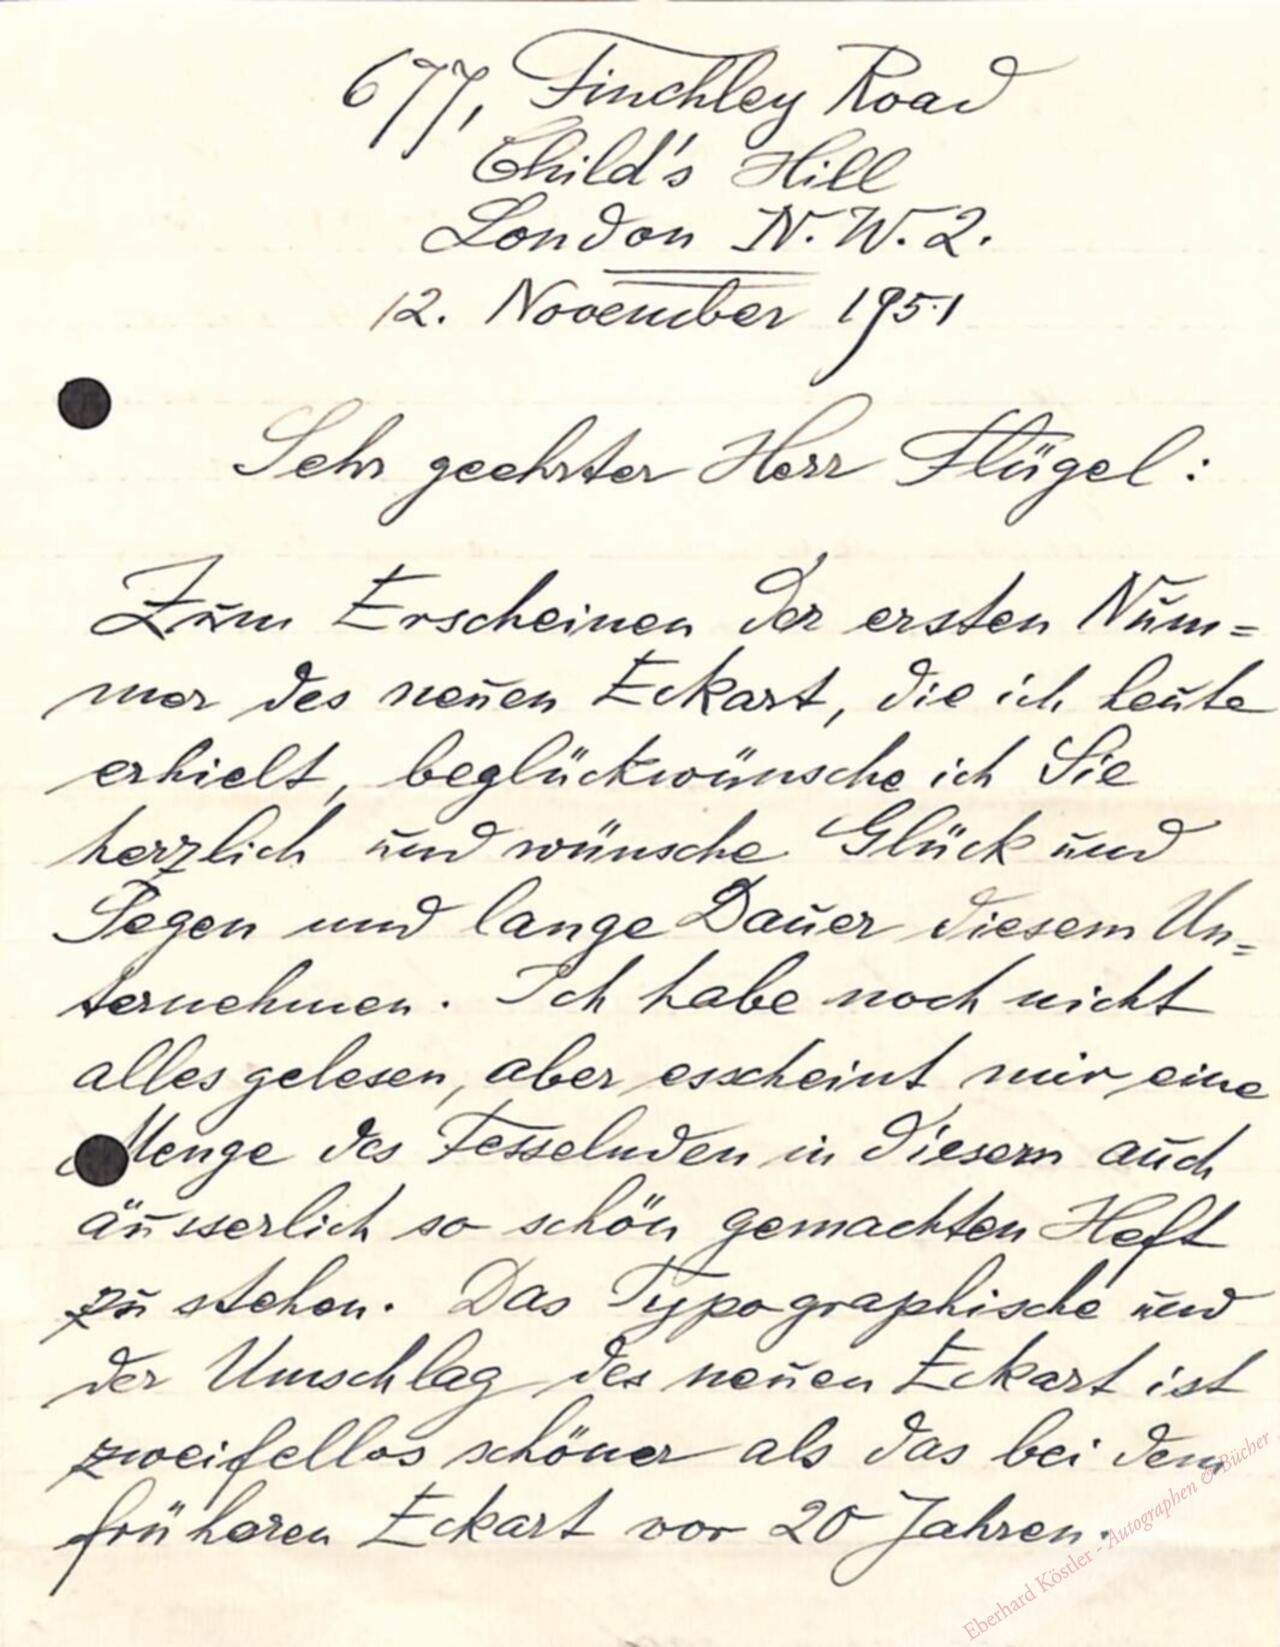 677, Finchley Road
Child's Hill
London N.W.2.
12. November 1951
Sehr geehrter Herr Flügel:
Zum Erscheinen der ersten Num=
mer des neuen Eckart, die ich heute
erhielt, beglückwünsche ich Sie
herzlich und wünsche Glück und
Segen und lange Dauer diesem Un=
ternehmen. Ich habe noch nicht
alles gelesen, aber es scheint mir eine
Menge des Fesselnden in diesem auch
äusserlich so schön gemachten Heft
zu stehen. Das Typographische und
der Umschlag des neuen Eckart ist
zweifellos schöner als das bei dem
früheren Eckart vor 20 Jahren.
Eberhard Köstler - Autographen & Bücher